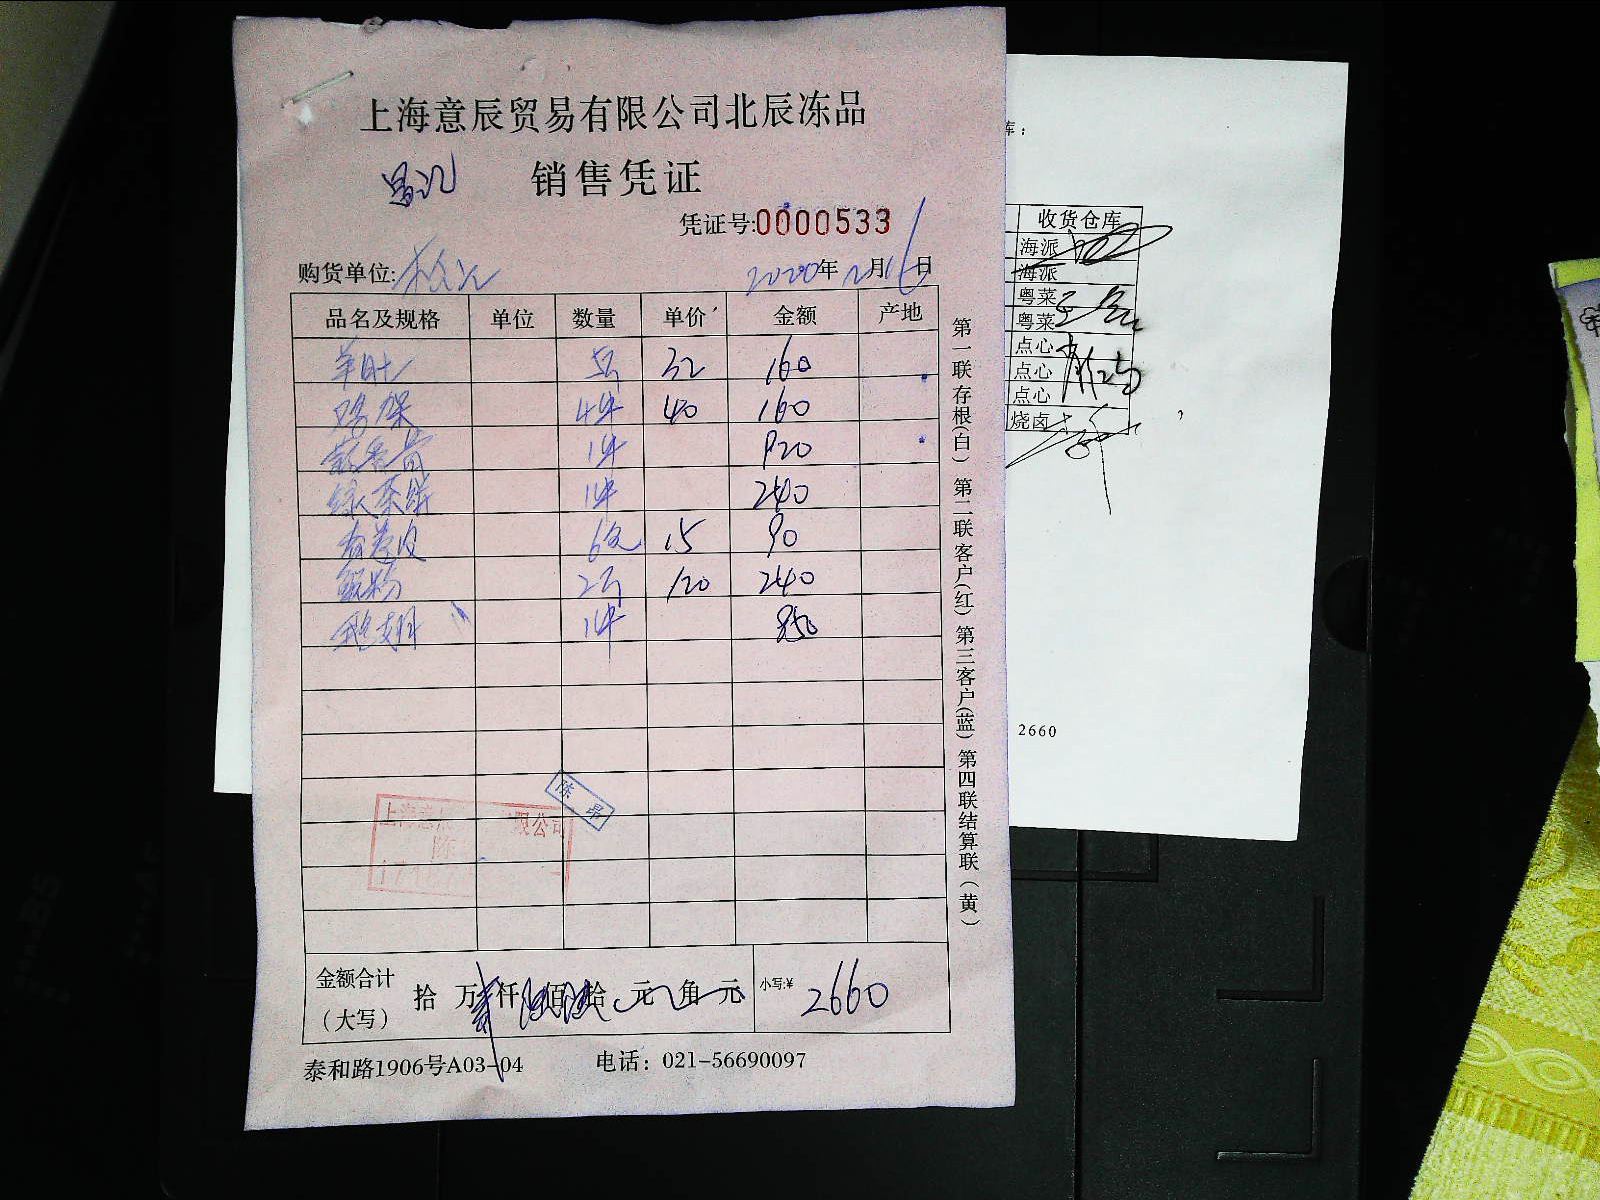 上海意辰贸易有限公司北辰冻品
销售凭证
凭证号:0000533
购货单位: 2020年12月16日
品名及规格 单位 数量 单价 金额 产地
羊肚 5斤 32 160
鸡架 4件 40 160
1件 920
绿茶饼 1件 240
春卷皮 6包 15 90
2斤 120 240
鹅翅 1件 850
上海意辰 限公司
陈
陈昂
金额合计 拾 万 仟 佰 拾 元 角 元 小写:¥ 2660
(大写)
泰和路1906号A03-04 电话：021-56690097
第一联存根(白) 第二联客户(红) 第三客户(蓝) 第四联结算联(黄)
库：
收货仓库
海派
海派
粤菜
粤菜
点心
点心
点心
烧卤
2660